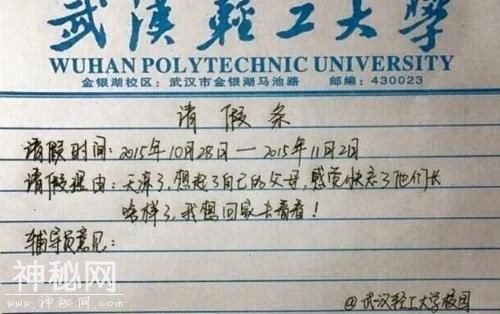 武漢輕工大學
WUHAN POLYTECHNIC UNIVERSITY
金银湖校区：武汉市金银湖马池路 邮编：430023
请假条
请假时间：2015年10月28日—2015年11月2日
请假理由：天凉了，想起了自己的父母，感觉快忘了他们长
啥样了，我想回家去看看！
辅导员意见：
神秘网
www.shenmiw.com
@武汉轻工大学校园